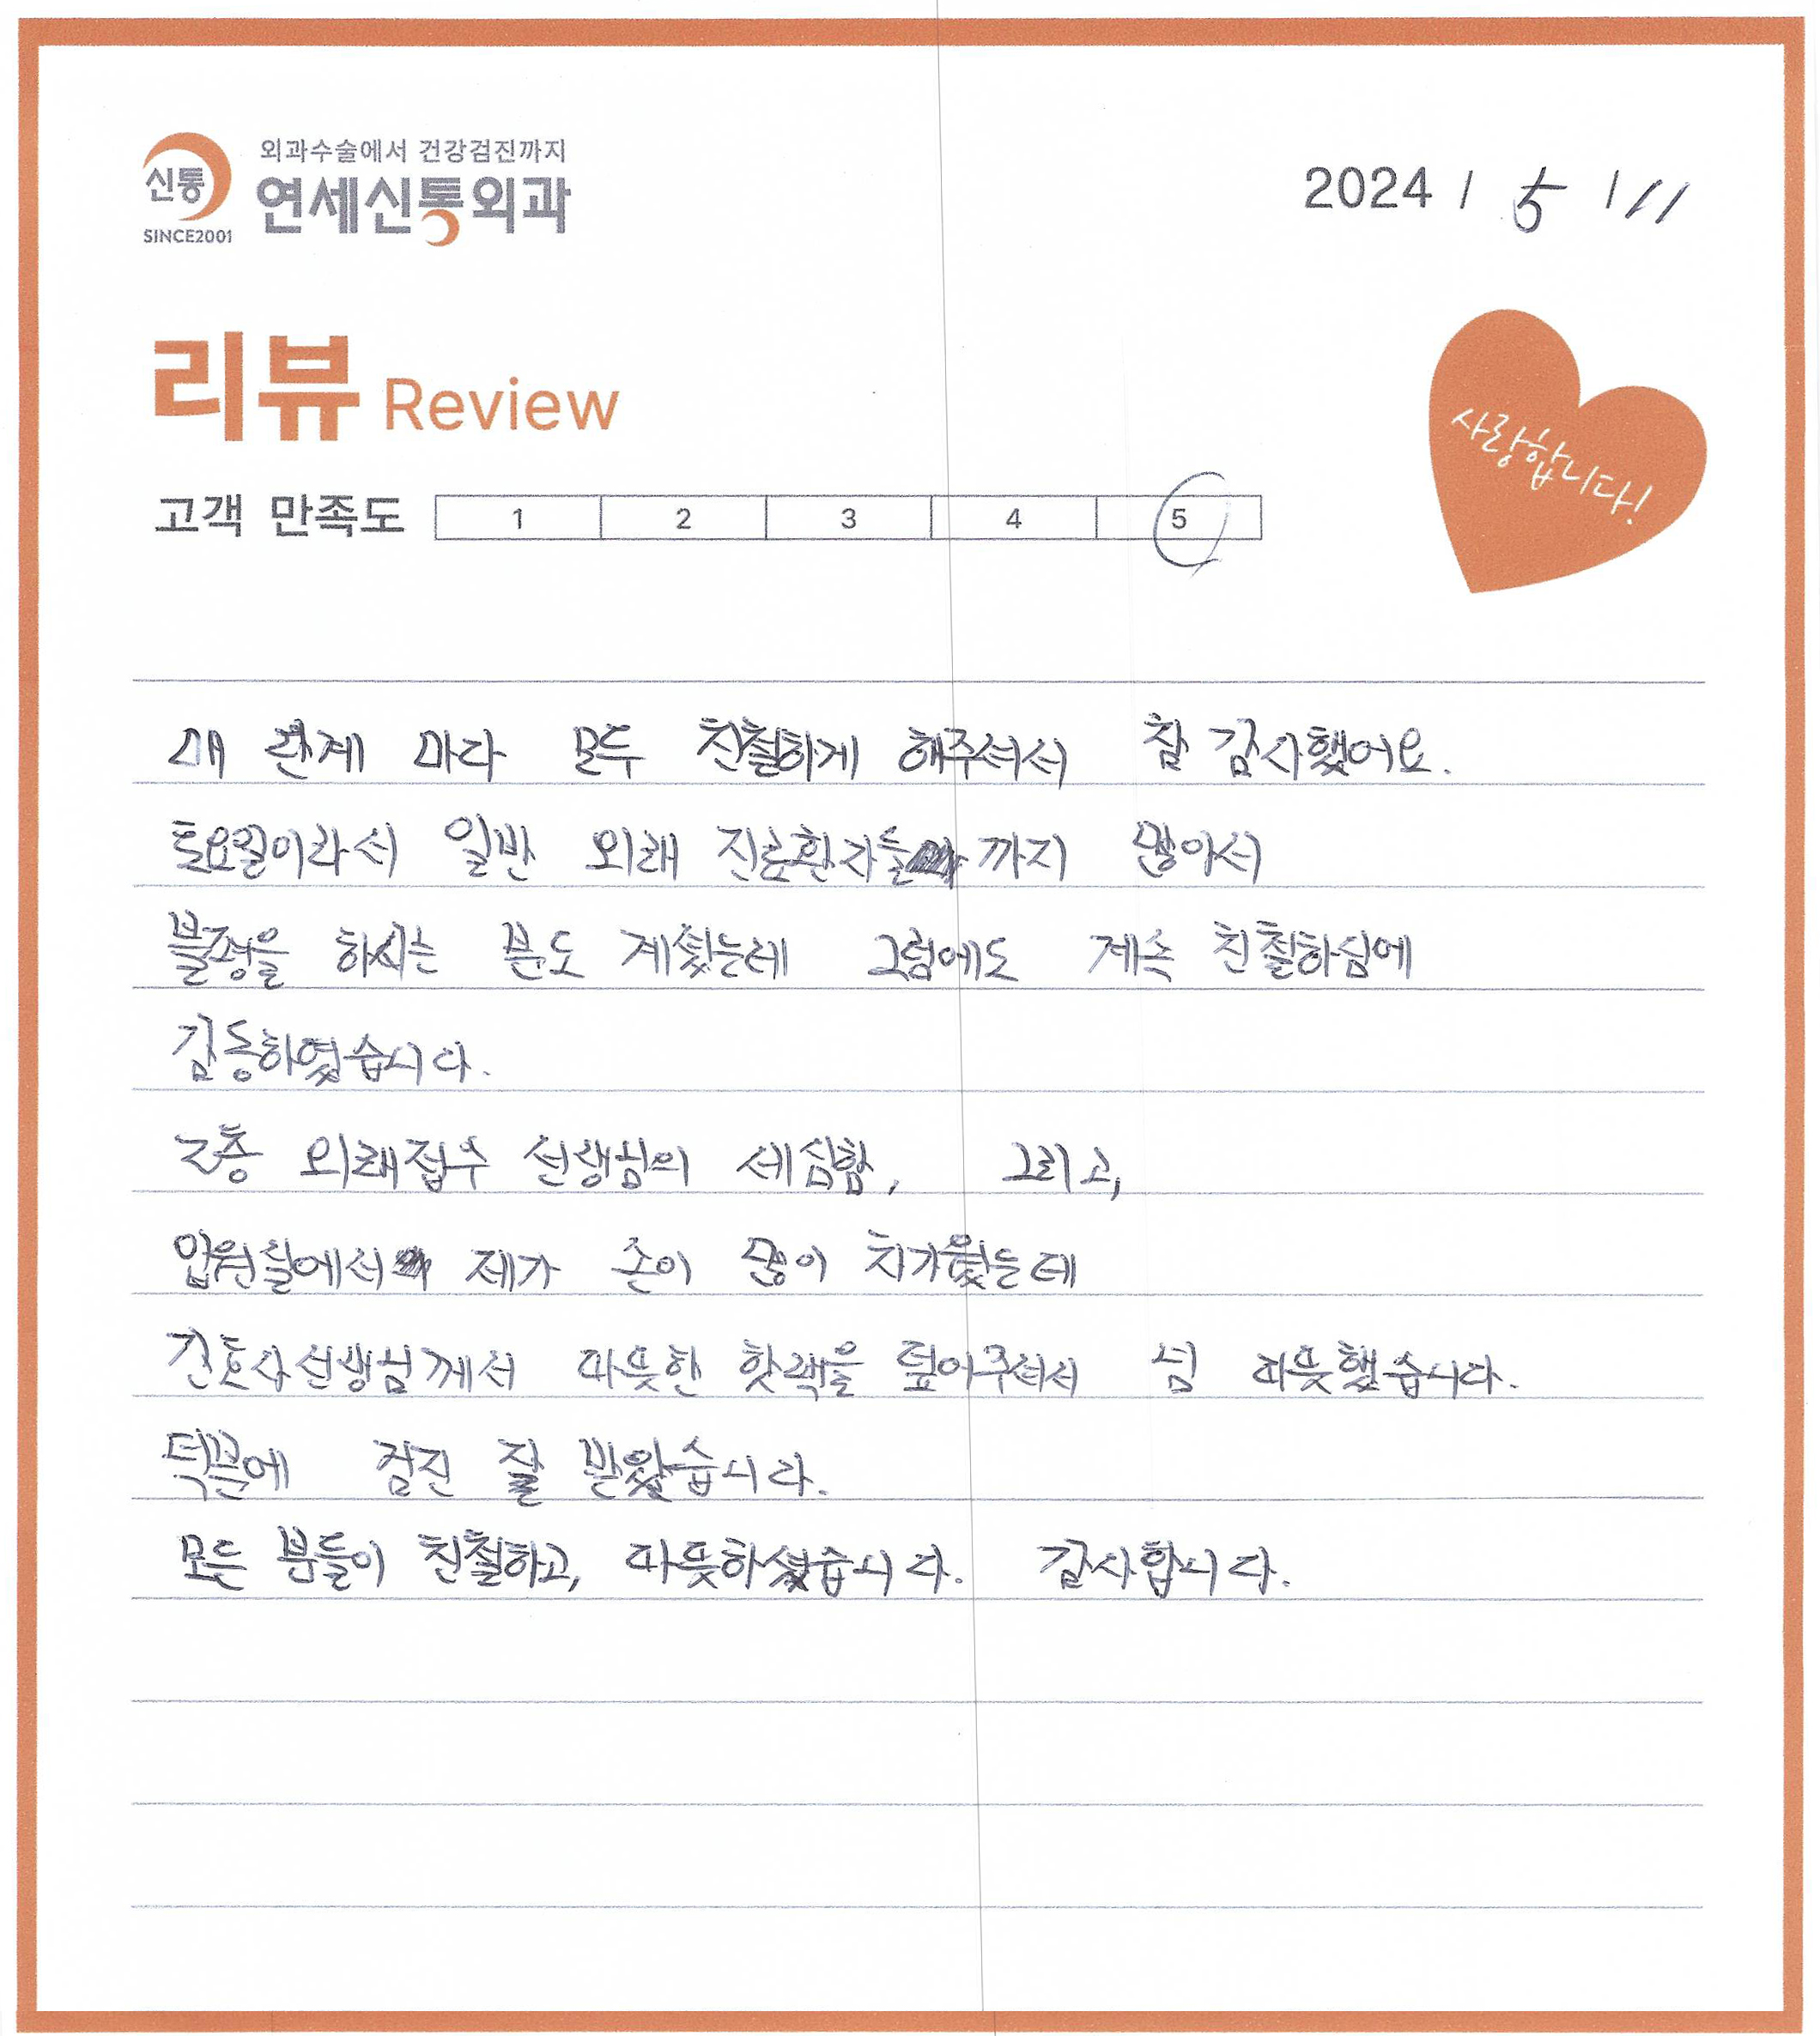 외과수술에서 건강검진까지
신통
연세신통외과
SINCE2001
2024 / 5 / 11
리뷰 Review
사랑합니다!
고객 만족도 1 2 3 4 5
매 관계 마다 모두 친절하게 해주셔서 참 감사했어요.
토요일이라서 일반 외래 진료환자들까지 많아서
불평을 하시는 분도 계셨는데 그럼에도 계속 친절하심에
감동하였습니다.
2층 외래접수 선생님의 세심함, 그리고,
입원실에서 제가 손이 많이 차가웠는데
간호사선생님께서 따뜻한 핫팩을 덮어주셔서 넘 따뜻했습니다.
덕분에 검진 잘 받았습니다.
모든 분들이 친절하고, 따뜻하셨습니다. 감사합니다.